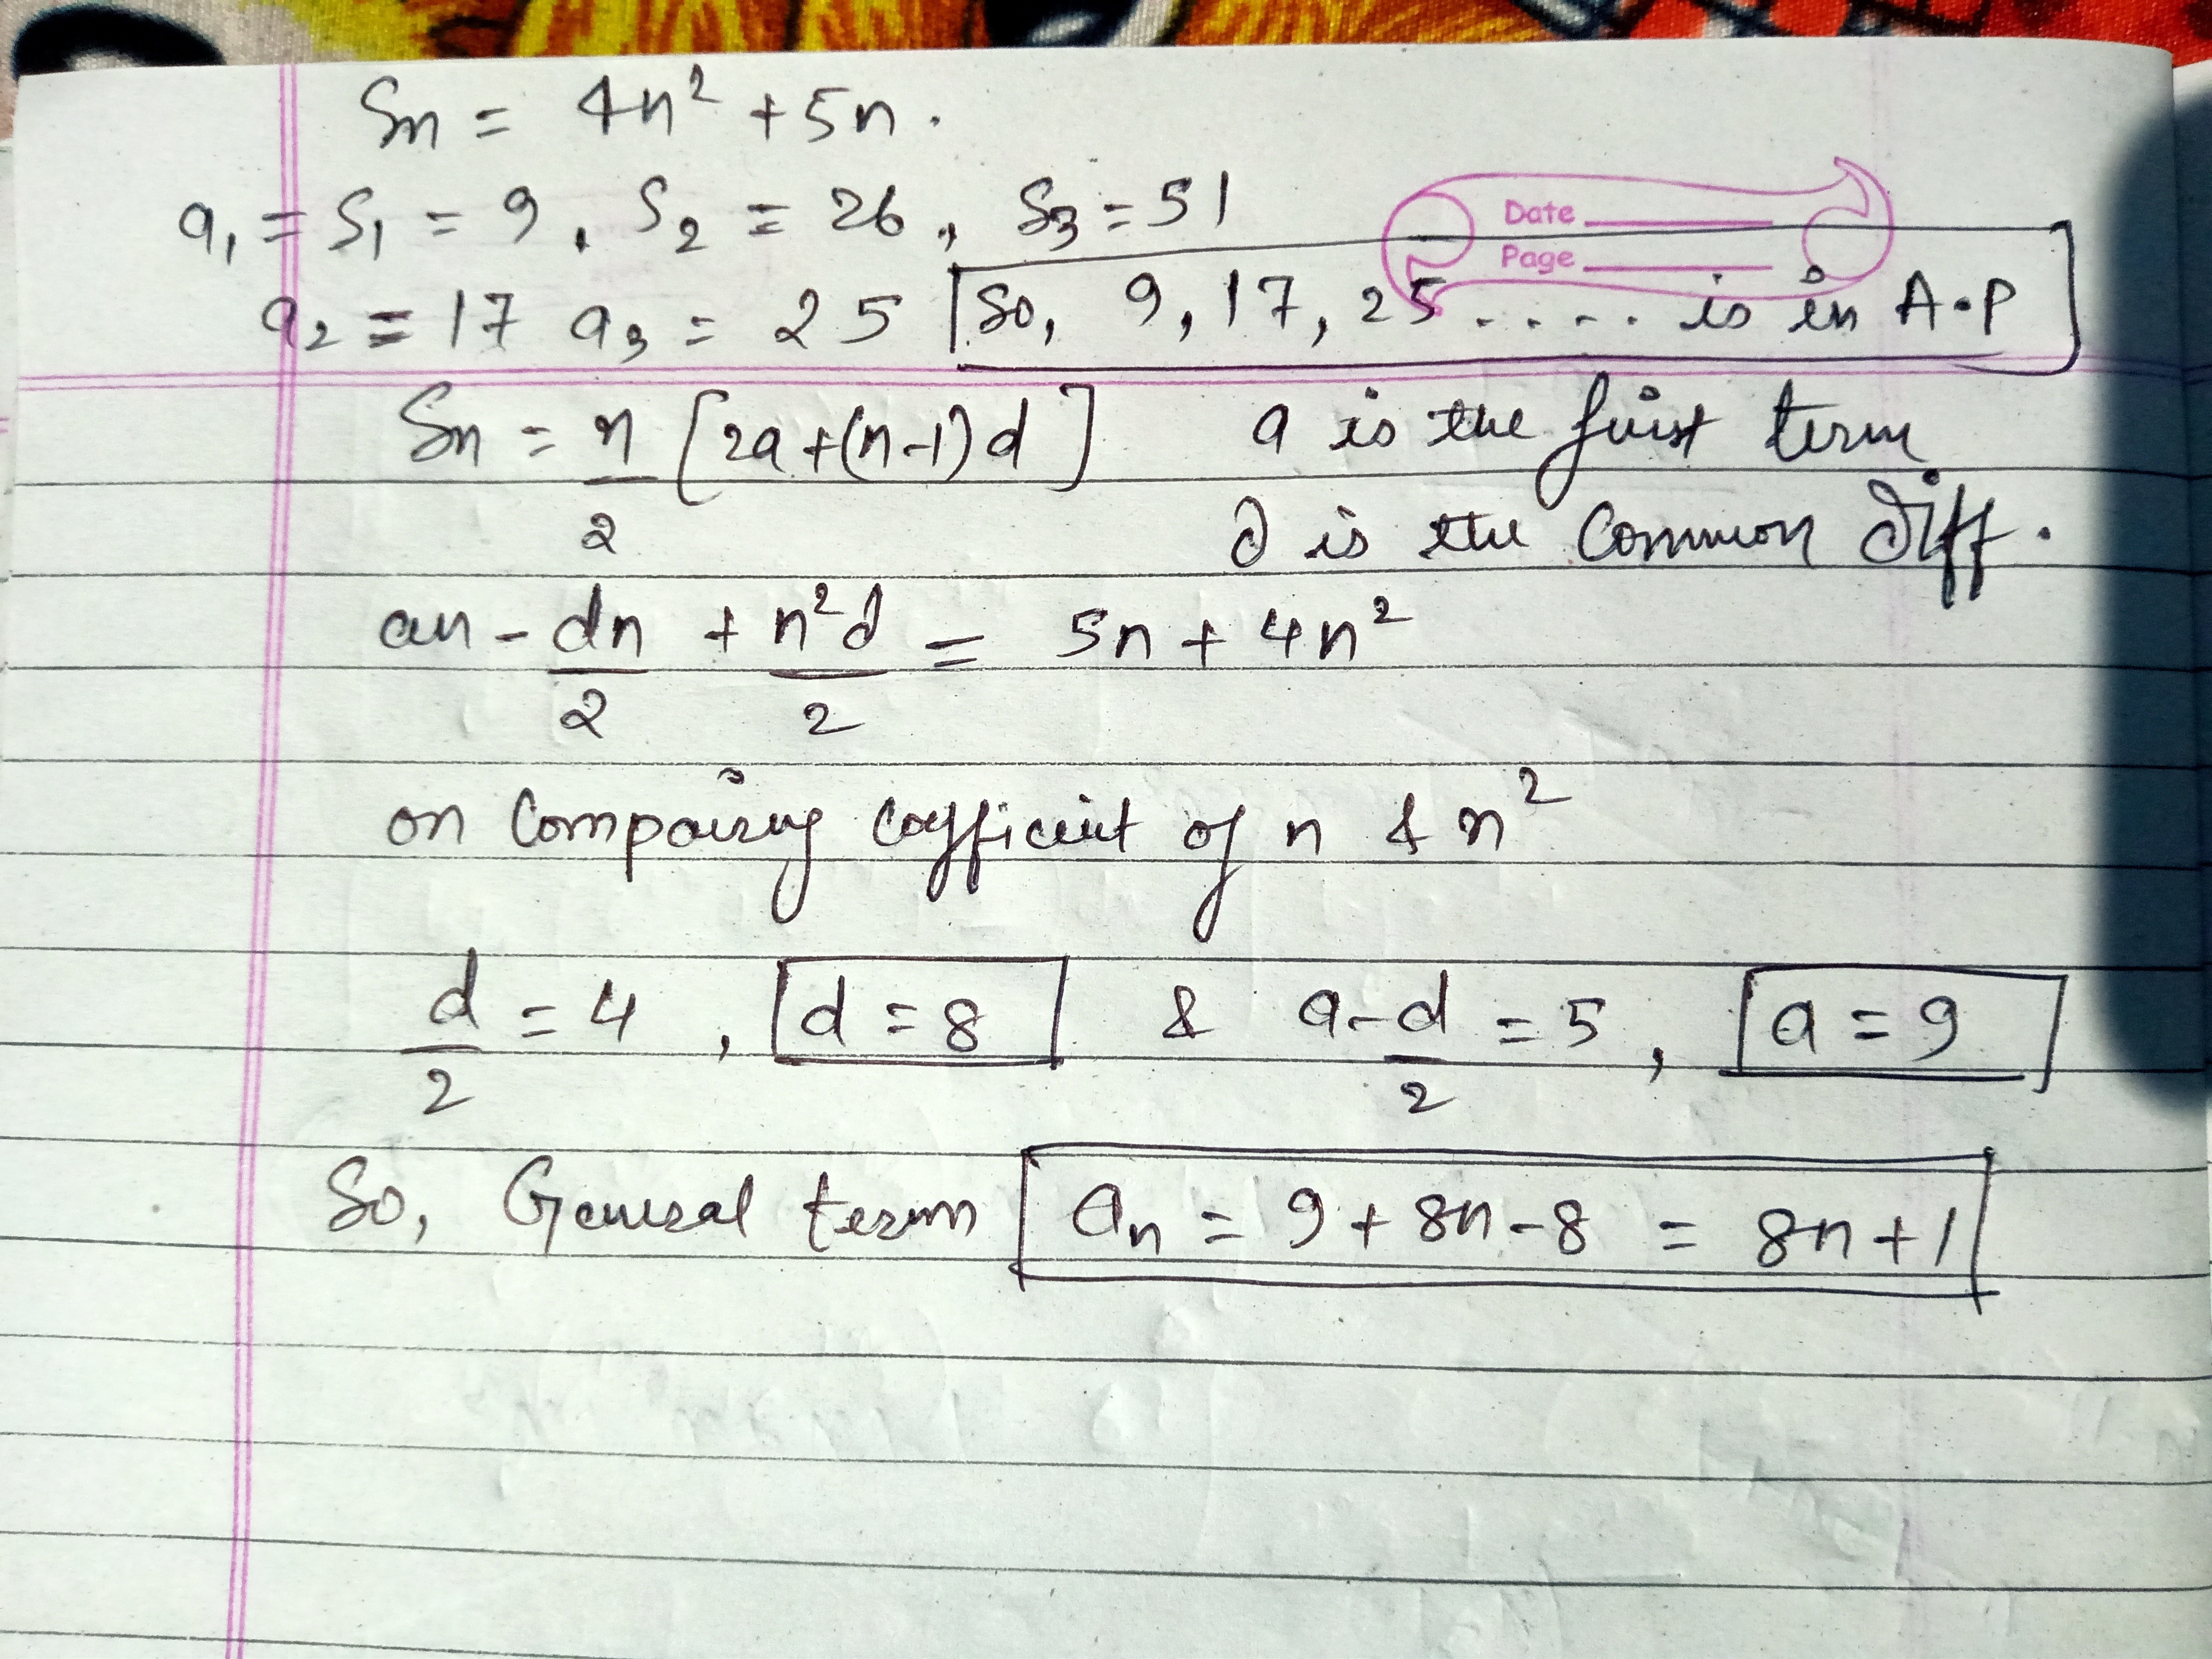 Sn = 4n² + 5n.
a₁ = S₁ = 9, S₂ = 26, S₃ = 51
Date
Page
a₂ = 17 a₃ = 25 So, 9, 17, 25 ..... is in A.P
Sn = n/2 [2a+(n-1)d] a is the first term
d is the Common diff.
an - dn/2 + n²d/2 = 5n + 4n²
on Compairing cofficient of n & n²
d/2 = 4, d = 8 & a-d/2 = 5, a = 9
So, General term aₙ = 9 + 8n - 8 = 8n+1